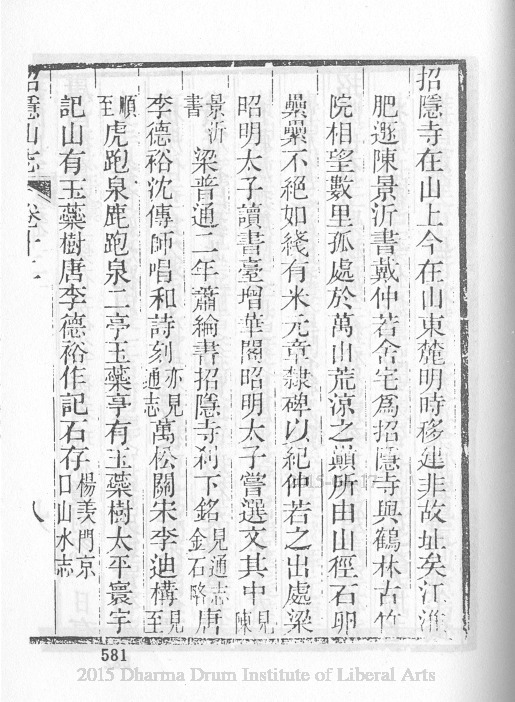 招隱寺在山上今在山東麓明時移建非故址矣江淮
肥遯陳景沂書戴仲若舍宅為招隱寺與鶴林古竹
院相望數里孤處於萬山荒涼之巔所由山徑石卵
纍纍不絕如綫有米元章隸碑以紀仲若之出處梁
昭明太子讀書臺增華閣昭明太子嘗選文其中見陳
景沂書梁普通二年蕭綸書招隱寺刹下銘見通志金石略唐
李德裕沈傳師唱和詩刻亦見通志萬松關宋李迪構見至
順至虎跑泉鹿跑泉二亭玉蘂亭有玉蘂樹太平寰宇
記山有玉蘂樹唐李德裕作記石存楊棨京口山水志
招隱山志 卷十二 八
581
2015 Dharma Drum Institute of Liberal Arts